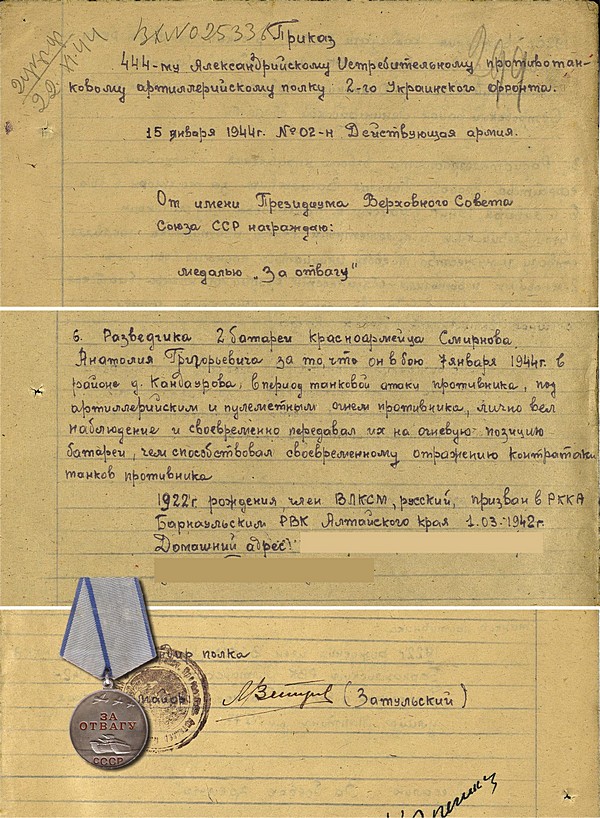 ВХ№025336
Приказ
444-му Александрийскому Истребительному противотан-
ковому артиллерийскому полку 2-го Украинского фронта.
15 января 1944г. №02-н Действующая армия.
От имени Президиума Верховного Совета
Союза ССР награждаю:
медалью „За отвагу"
6. Разведчика 2 батареи красноармейца Смирнова
Анатолия Григорьевича за то, что он в бою 7 января 1944г. в
районе д. Кандаурова, в период танковой атаки противника, под
артиллерийским и пулеметным огнем противника, лично вел
наблюдение и своевременно передавал их на огневую позицию
батареи, чем способствовал своевременному отражению контратаки
танков противника
1922г. рождения, член ВЛКСМ, русский, призван в РККА
Барнаульским РВК Алтайского края 1.03-1942г.
Домашний адрес:
полка
майор (Затульский)
ЗА
ОТВАГУ
СССР